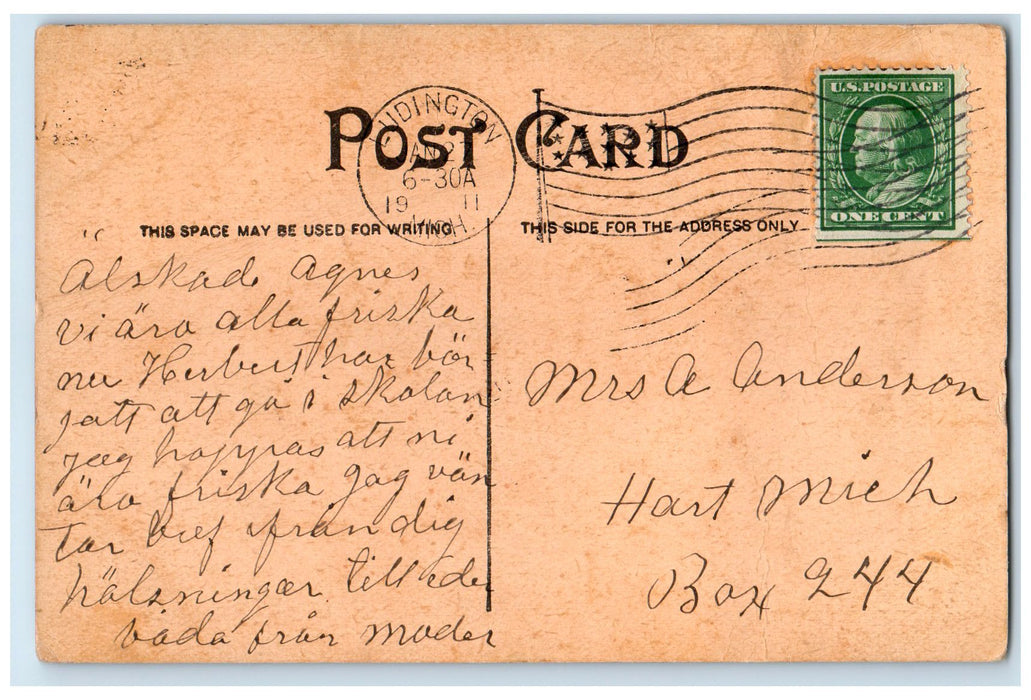 U.S. POSTAGE
ONE CENT
LUDINGTON
6-30A
19 11
MICH
POST CARD
THIS SPACE MAY BE USED FOR WRITING.
THIS SIDE FOR THE ADDRESS ONLY
Älskade Agnes
vi äro alla friska
nu Herbert har bör-
jatt att gå i skolan
jag hoppas att ni
äro friska jag vän
tar bref ifrån dig
hälsningar till eder
båda från moder
Mrs A Anderson
Hart Mich
Box 244